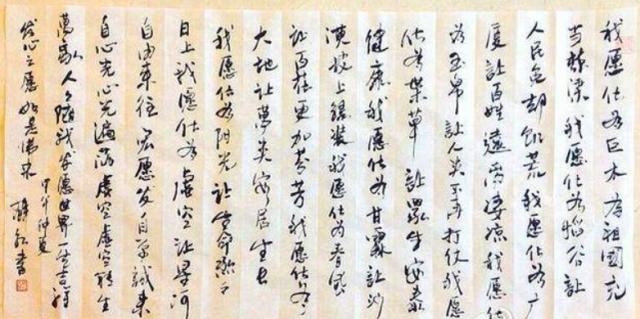 我愿化为巨木为祖国充
当栋梁我愿化为稻谷让
人民免却饥荒我愿化为广
厦让百姓远离凄凉我愿化
为玉帛让人类不再打仗我愿
化为药草让众生安泰
健康我愿化为甘霖让沙
漠披上绿装我愿化为春风
让百花更加芬芳我愿化为
大地让万类安居生长
我愿化为阳光让生命蒸蒸
日上我愿化为虚空让星河
自由来往宏愿发自至诚来
自心光心光遍满虚空虚空转生
万象人人随我发愿世界一片吉祥
发心之愿如是佛来
甲午仲夏
书